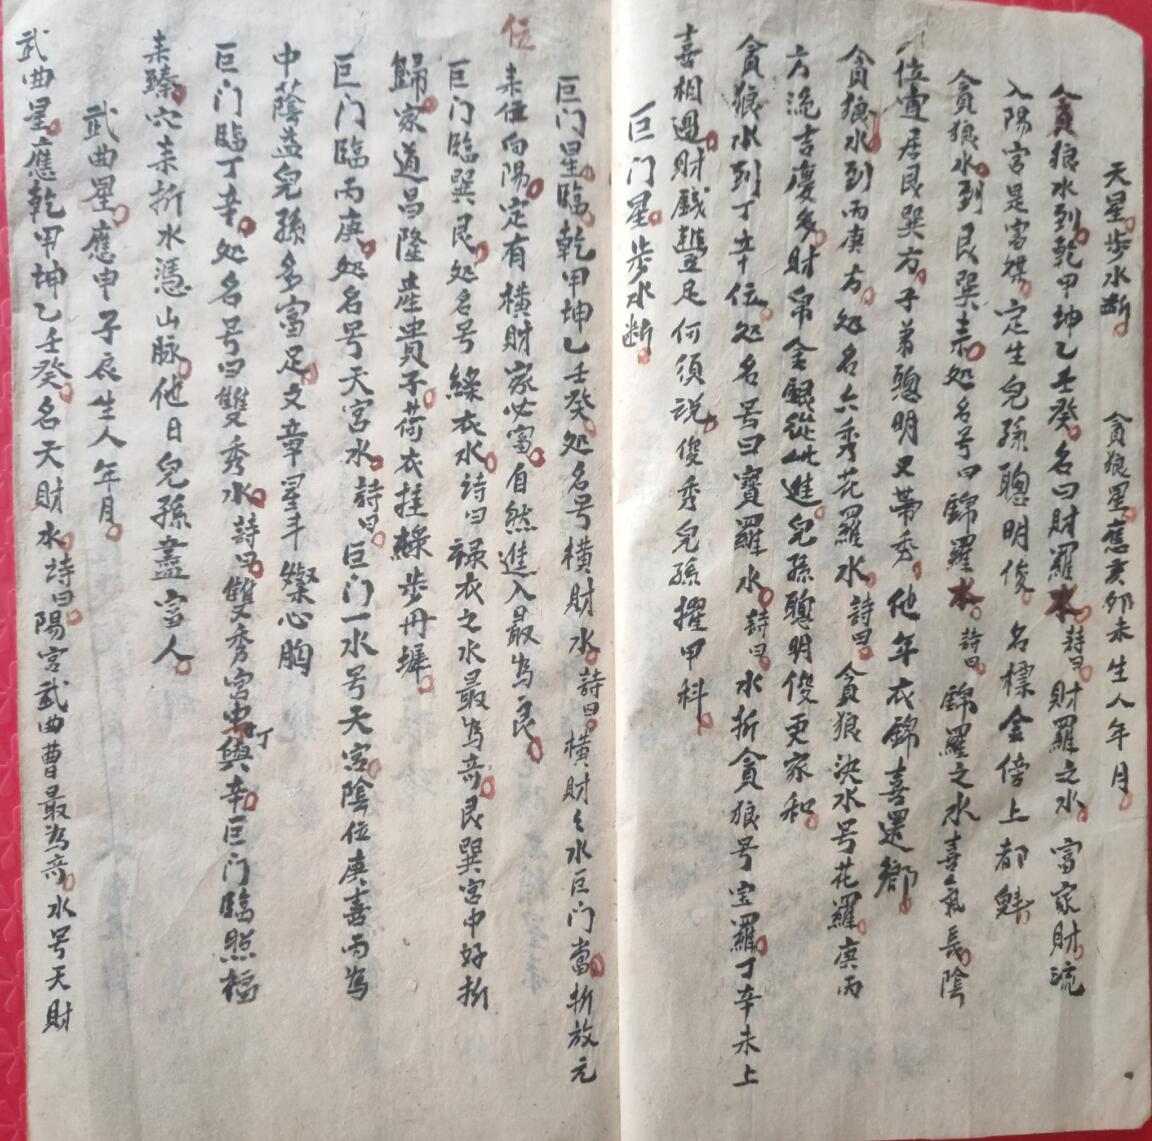 天星步水断 貪狼星應亥卯未生人年月
貪狼水到乾甲坤乙壬癸名曰財羅水詩曰財羅之水富家財流
入陽宮是富媒定生兒孫聰明俊名標金傍上都魁
貪狼水到艮巽耒処名号曰錦羅水詩曰錦羅之水喜氣長陰
位連居艮巽方子弟聰明又带秀他年衣錦喜還鄉
貪狼水到丙庚方処名六秀花羅水詩曰貪狼決水号花羅庚丙
方流吉慶多財帛金銀從此進兒孫聰明俊更家和
貪狼水到丁辛位処名号曰寶羅水詩曰水折貪狼号宝羅丁辛未上
喜相過財錢豐足何須说俊秀兒孫擢甲科
巨门星步水断
巨门星臨乾甲坤乙壬癸処名号橫財水詩曰橫財之水巨门當折放元
位
耒位向陽定有橫財家必富自然進入最為良
巨门臨巽艮処名号綠衣水詩曰禄衣之水最為奇艮巽宮中好折
歸家道昌隆産貴子荷衣挂綠步丹墀
巨门臨丙庚処名号天宮水詩曰巨门一水号天宮陰位庚喜丙為
中蔭益兒孫多富足文章星斗燦心胸
巨门臨丁辛処名号曰雙秀水詩曰雙秀宮中丁與辛巨门臨照福
耒臻穴耒折水憑山脉他日兒孫盡富人
武曲星應申子辰生人年月
武曲星應乾甲坤乙壬癸名天財水詩曰陽宮武曲曹最為奇水号天財